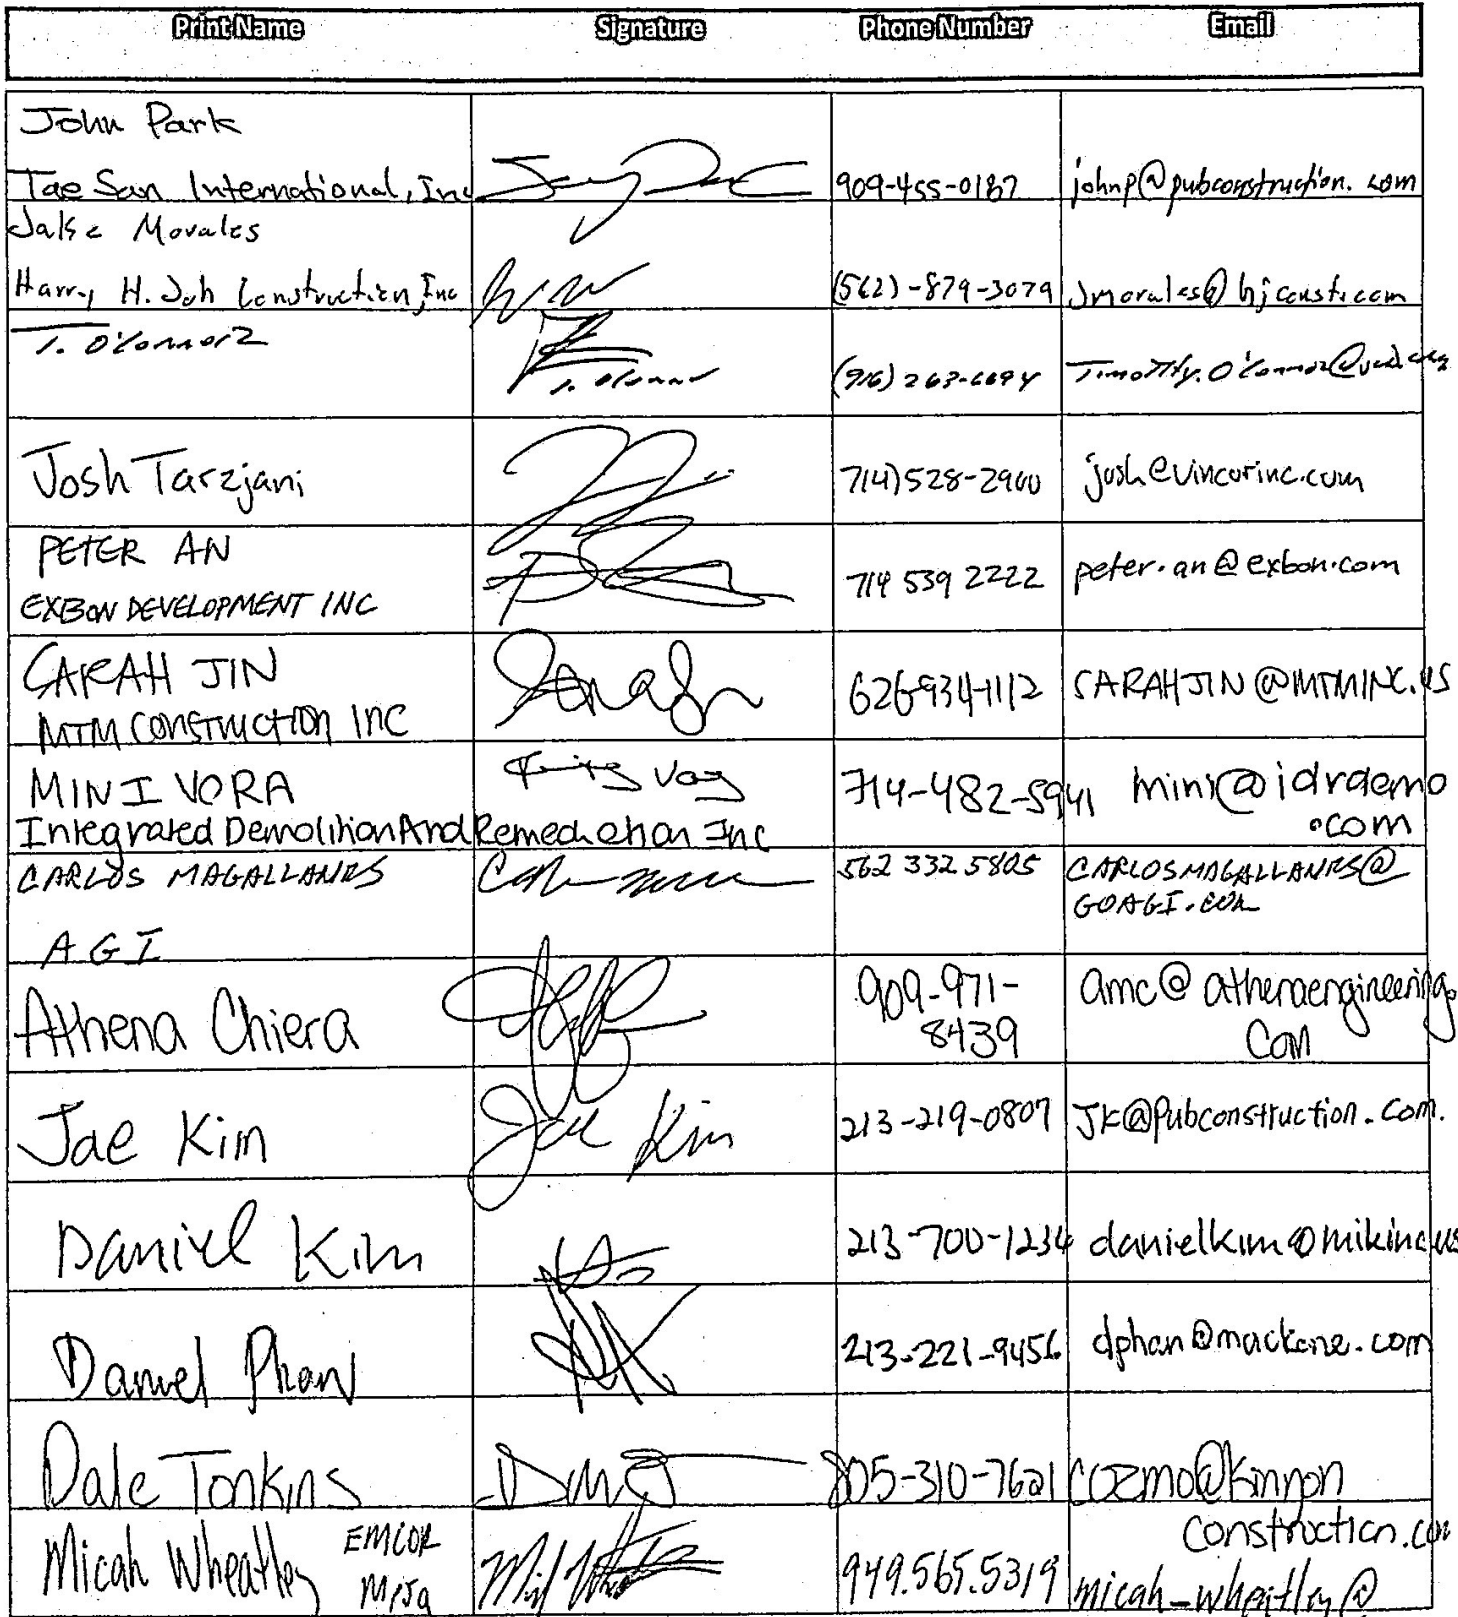 Print Name Signature Phone Number Email
John Park
Tae San International, Inc 909-455-0187 johnp@pubconstruction.com
Jake Morales
Harry H. Joh Construction, Inc (562)-879-3079 Jmorales@hjconst.com
T. O'Connor T. O'Connor (916) 263-6694
Josh Tarzjani 714)528-2900 josh@vincorinc.com
PETER AN
EXBON DEVELOPMENT INC 714 539 2222 peter.an@exbon.com
SARAH JIN
MTM CONSTRUCTION INC 626-934-1112 SARAHJIN@MTMINC.US
MINI VORA 714-482-5941 mini@idrdemo
.com
Integrated Demolition And Remediation Inc
CARLOS MAGALLANES 562 332 5805 CARLOSMAGALLANES@
GOAGI.COM
AGI
Athena Chiera 909-971- amc@athenaengineering.
8439 com
Jae Kim Jae Kim 213-219-0807 JK@Pubconstruction.com.
Daniel Kim 213-700-1234 danielkim@mikinc.us
Daniel Phan 213-221-9456 dphan@mackone.com
Dale Tonkins 805-310-7621 cozmo@kinyon
construction.com
Micah Wheatley EMCOR 949.565.5319 micah_wheatley@
Mesa